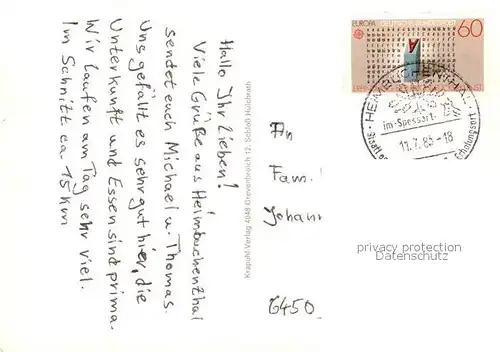 Hallo Ihr Lieben!
Viele Grüße aus Heimbuchenthal
sendet euch Michael u. Thomas.
Uns gefällt es sehr gut hier, die
Unterkunft und Essen sind prima.
Wir laufen am Tag sehr viel.
Im Schnitt ca. 15 km
Krapohl-Verlag 4048 Grevenbroich 12, Schloß Hülchrath
An
Fam.
Johann
6450
EUROPA DEUTSCHE BUNDESPOST 60
HEIMBUCHENTHAL
im-Spessart
11.7.83-18
Erholungsort
privacy protection
Datenschutz